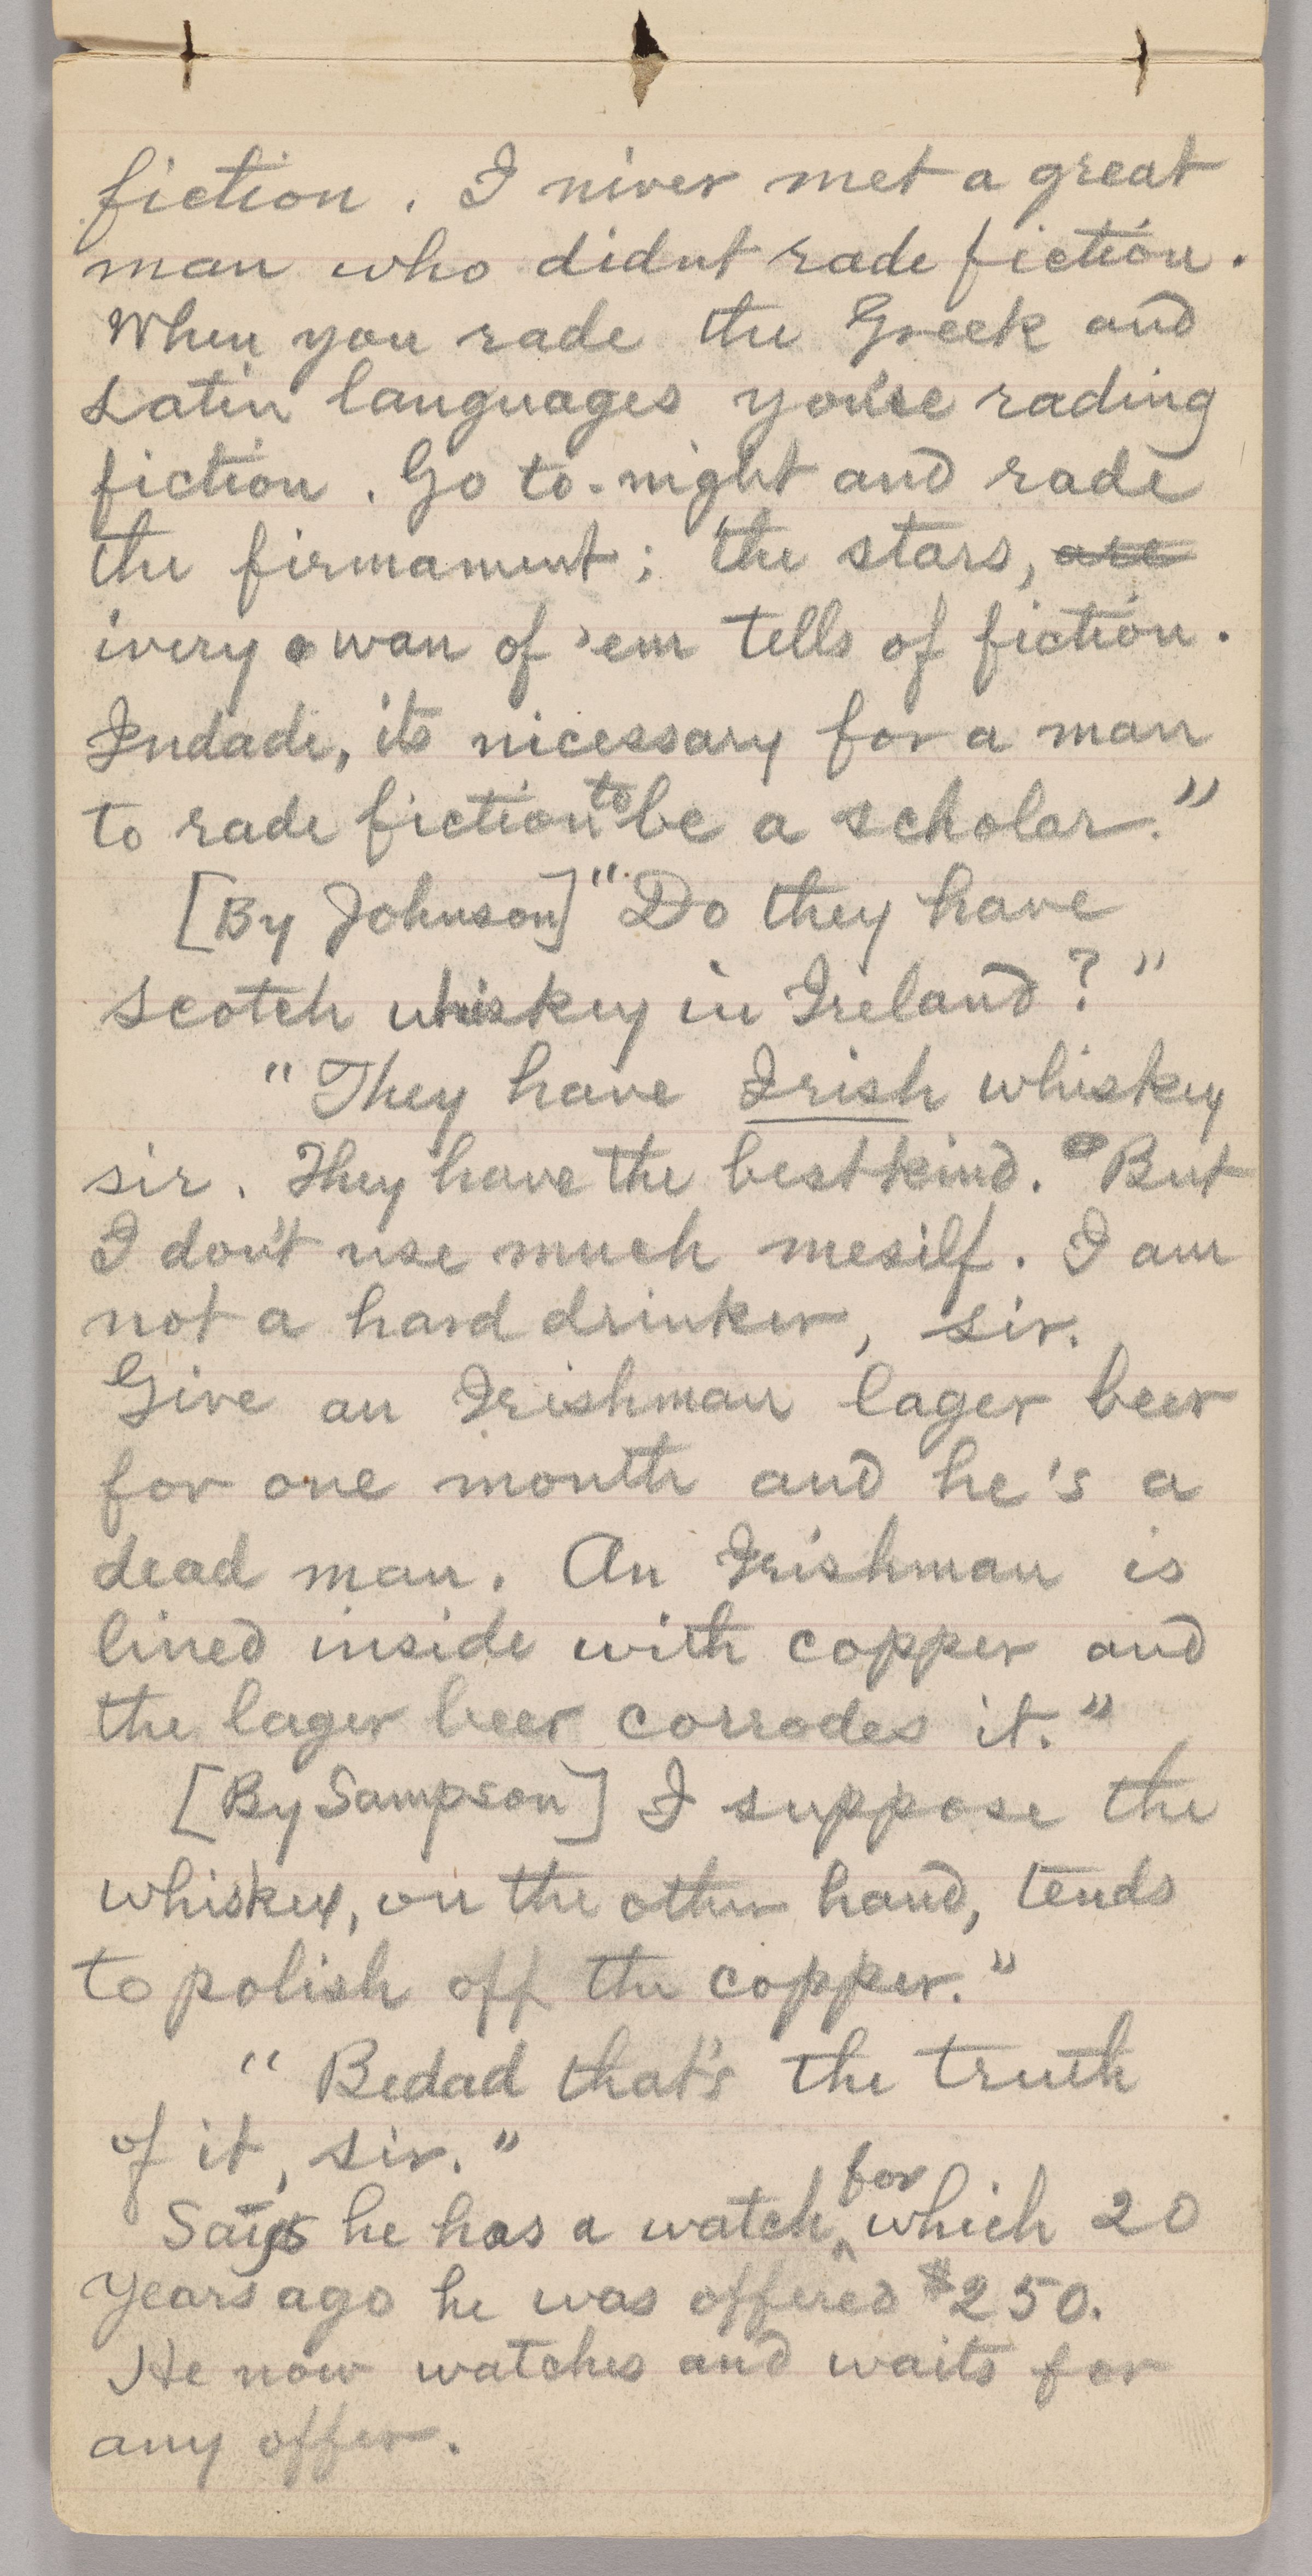 fiction. I niver met a great
man who didnt rade fiction.
When you rade the Greek and
Latin languages you'se rading
fiction. Go to-night and rade
the firmament; the stars, are
ivery wan of 'em tells of fiction.
Indade, its nicessary for a man
to rade fiction to be a scholar."
[By Johnson] "Do they have
Scotch whiskey in Ireland?"
"They have Irish whiskey
sir. They have the best kind. But
I don't use much mesilf. I am
not a hard drinker, sir.
Give an Irishman lager beer
for one month and he's a
dead man. An Irishman is
lined inside with copper and
the lager beer corrodes it."
[By Sampson] I suppose the
whiskey, on the other hand, tends
to polish off the copper."
"Bedad that's the truth
of it, sir."
Says he has a watch for which 20
years ago he was offered $250.
He now watches and waits for
any offer.